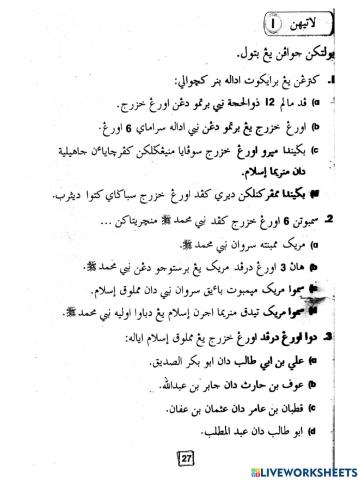 لاتيهن ١
بولتكن جوافن يڠ بتول.
1. كترڠن يڠ برايكوت اداله بنر كچوالي:
a) قد مالم 12 ذوالحجة نبي برتمو دڠن اورڠ خزرج.
b) اورڠ خزرج يڠ برتمو دڠن نبي اداله سراماي 6 اورڠ.
c) بڬيندا ميرو اورڠ خزرج سوڤايا منيڠݢلكن كڤرچاياءن جاهيلية
دان منريما إسلام.
d) بڬيندا ممڤركنلكن ديري كڤد اورڠ خزرج سباڬاي كتوا ديثرب.
2. سمبوتن 6 اورڠ خزرج كڤد نبي محمد ﷺ منچريتاكن ...
a) مريك ممبنته سروان نبي محمد ﷺ.
b) هاڽ 3 اورڠ درڤد مريك يڠ برستوجو دڠن نبي محمد ﷺ.
c) سموا مريك ميمبوت باءيق سروان نبي دان مملوق إسلام.
d) سموا مريك تيدق منريما اجرن إسلام يڠ دباوا اوليه نبي محمد ﷺ.
3. دوا اورڠ درڤد اورڠ خزرج يڠ مملوق إسلام اياله:
a) علي بن ابي طالب دان ابو بكر الصديق.
b) عوف بن حارث دان جابر بن عبدالله.
c) قطبان بن عامر دان عثمان بن عفان.
d) ابو طالب دان عبد المطلب.
27
LIVEWORKSHEETS